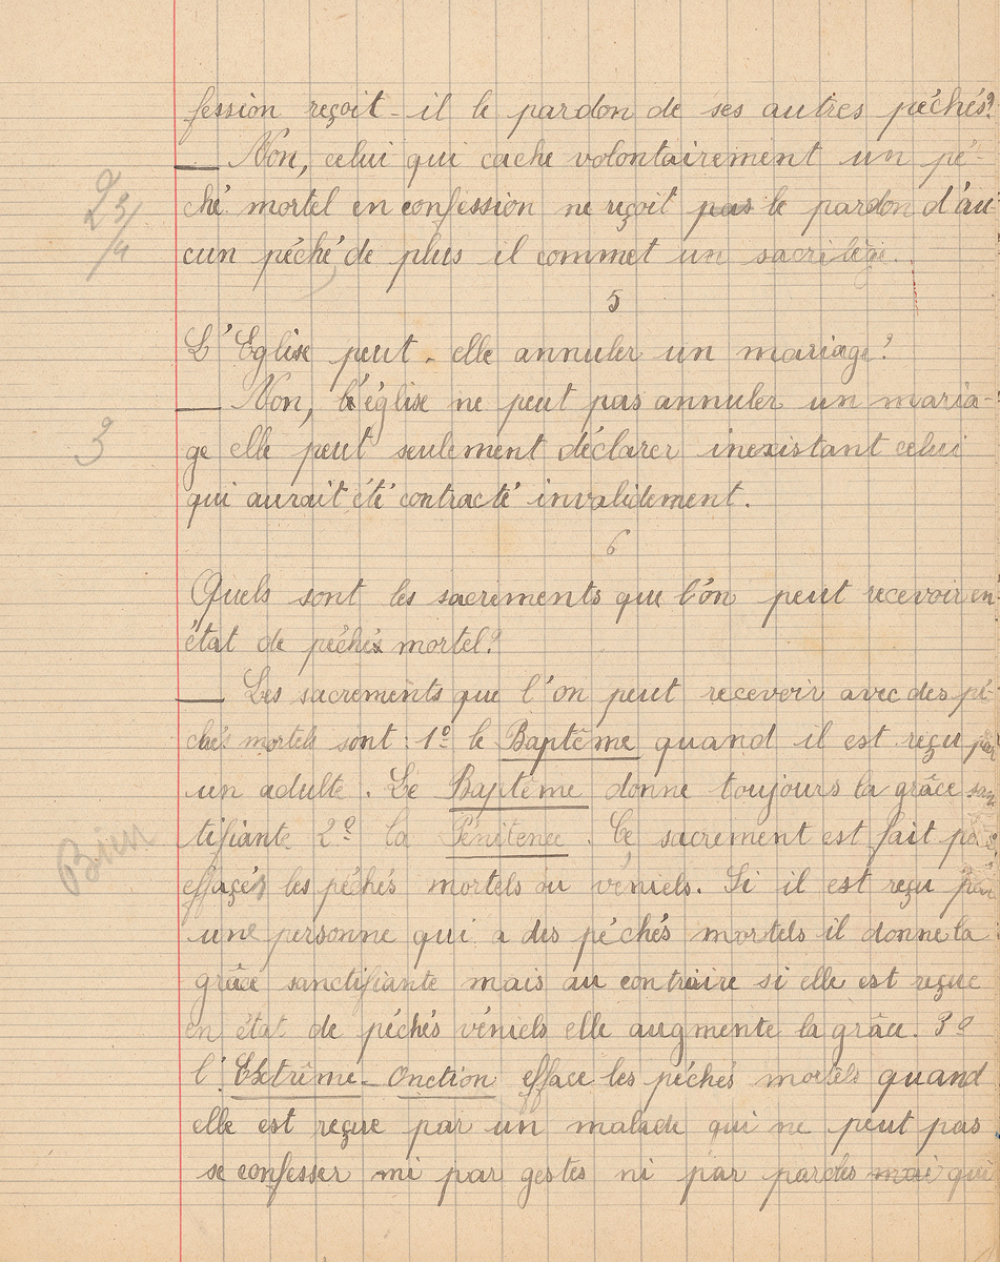 fession reçoit-il le pardon de ses autres péchés?
— Non, celui qui cache volontairement un pé-
ché mortel en confession ne reçoit pas le pardon d'au-
2 3/4
cun péché de plus il commet un sacrilège.
5
L'Eglise peut-elle annuler un mariage?
— Non, l'église ne peut pas annuler un maria-
3
ge elle peut seulement déclarer inexistant celui
qui aurait été contracté invalidement.
6
Quels sont les sacrements que l'on peut recevoir en
état de péchés mortel?
— Les sacrements que l'on peut recevoir avec des pé-
chés mortels sont : 1º le Baptême quand il est reçu par
un adulte. Le Baptême donne toujours la grâce sanc
tifiante 2º la Pénitence. Ce sacrement est fait
Bien
effaçés les péchés mortels ou véniels. Si il est reçu par
une personne qui a des péchés mortels il donne la
grâce sanctifiante mais au contraire si elle est reçue
en état de péchés véniels elle augmente la grâce. 3º
l'Extrême-Onction efface les péchés mortels quand
elle est reçue par un malade qui ne peut pas
se confesser ni par gestes ni par paroles mai qui